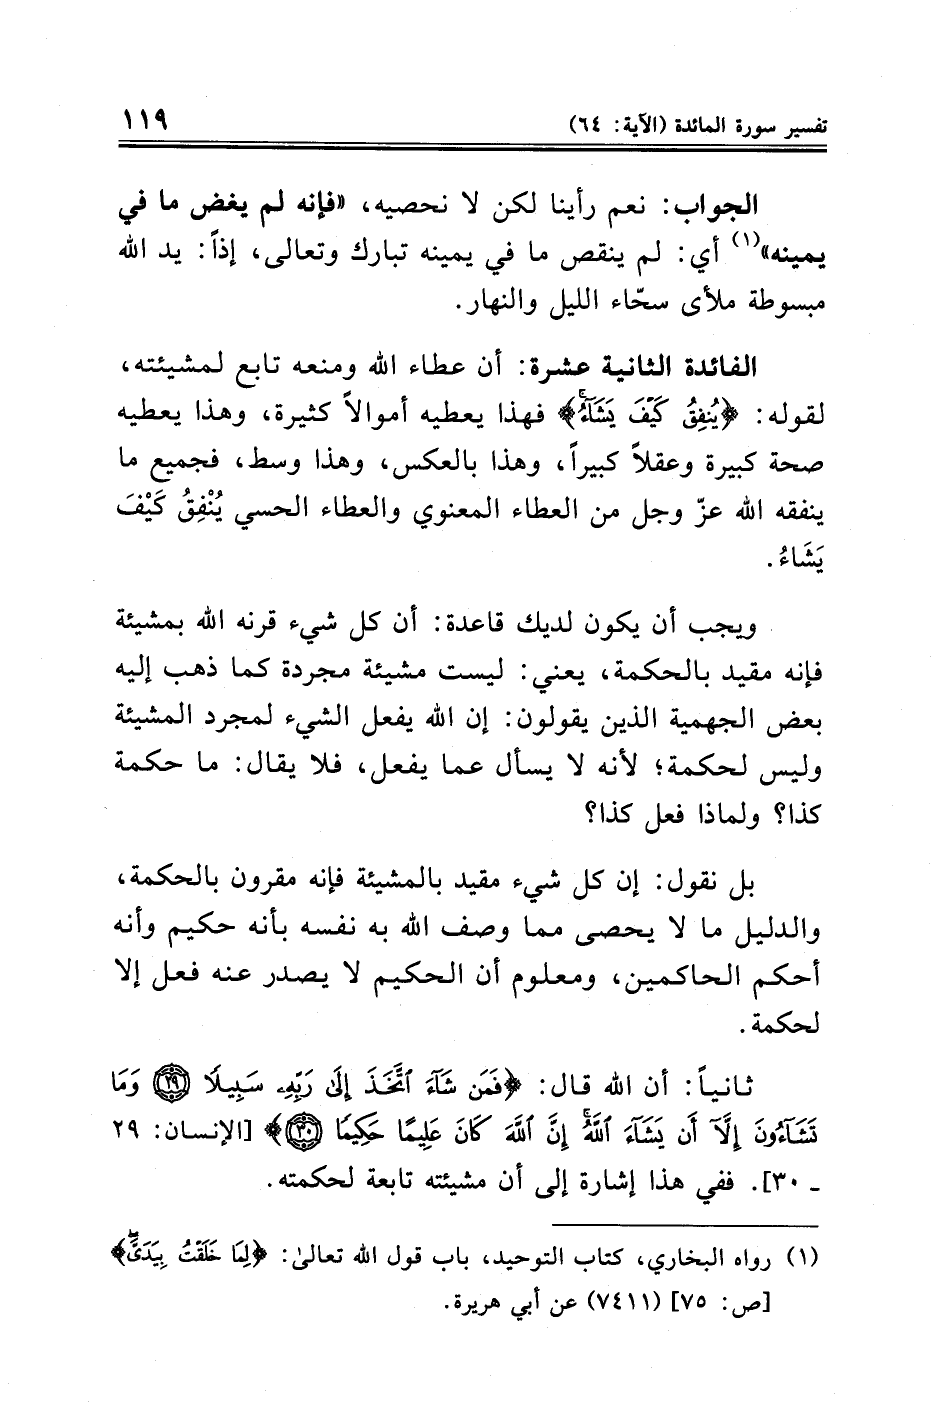 تفسير سورة المائدة (الآية: ٦٤) ١١٩
الجواب: نعم رأينا لكن لا نحصيه، «فإنه لم يغض ما في
يمينه»(١) أي: لم ينقص ما في يمينه تبارك وتعالى، إذاً: يد الله
مبسوطة ملأى سحّاء الليل والنهار.
الفائدة الثانية عشرة: أن عطاء الله ومنعه تابع لمشيئته،
لقوله: ﴿يُنفِقُ كَيْفَ يَشَآءُ﴾ فهذا يعطيه أموالاً كثيرة، وهذا يعطيه
صحة كبيرة وعقلاً كبيراً، وهذا بالعكس، وهذا وسط، فجميع ما
ينفقه الله عزّ وجل من العطاء المعنوي والعطاء الحسي يُنْفِقُ كَيْفَ
يَشَاءُ.
ويجب أن يكون لديك قاعدة: أن كل شيء قرنه الله بمشيئة
فإنه مقيد بالحكمة، يعني: ليست مشيئة مجردة كما ذهب إليه
بعض الجهمية الذين يقولون: إن الله يفعل الشيء لمجرد المشيئة
وليس لحكمة؛ لأنه لا يسأل عما يفعل، فلا يقال: ما حكمة
كذا؟ ولماذا فعل كذا؟
بل نقول: إن كل شيء مقيد بالمشيئة فإنه مقرون بالحكمة،
والدليل ما لا يحصى مما وصف الله به نفسه بأنه حكيم وأنه
أحكم الحاكمين، ومعلوم أن الحكيم لا يصدر عنه فعل إلا
لحكمة.
ثانياً: أن الله قال: ﴿فَمَن شَآءَ ٱتَّخَذَ إِلَىٰ رَبِّهِۦ سَبِيلًا ٢٩ وَمَا
تَشَآءُونَ إِلَّآ أَن يَشَآءَ ٱللَّهُۚ إِنَّ ٱللَّهَ كَانَ عَلِيمًا حَكِيمًا ٣٠﴾ [الإنسان: ٢٩
ـ ٣٠]. ففي هذا إشارة إلى أن مشيئته تابعة لحكمته.
(١) رواه البخاري، كتاب التوحيد، باب قول الله تعالىٰ: ﴿لِمَا خَلَقْتُ بِيَدَيَّۖ﴾
[ص: ٧٥] (٧٤١١) عن أبي هريرة.